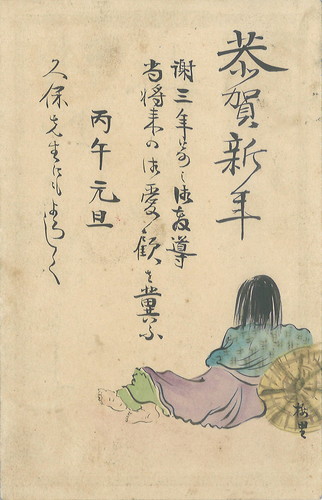 恭賀新年
謝三年訪之御教導
尚将来の御愛顧を冀ふ
丙午元旦
久保先生にもよろしく